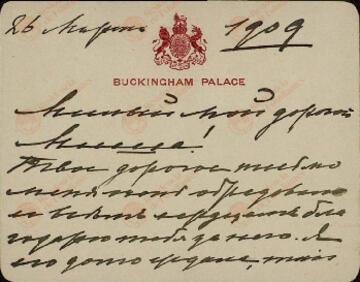 26 Марта 1909
BUCKINGHAM PALACE
Милый мой дорогой
Миша!
Твое дорогое письмо
меня так обрадовало
и всем сердцем бла
годарю тебя за него. Я
его долго ждала, так